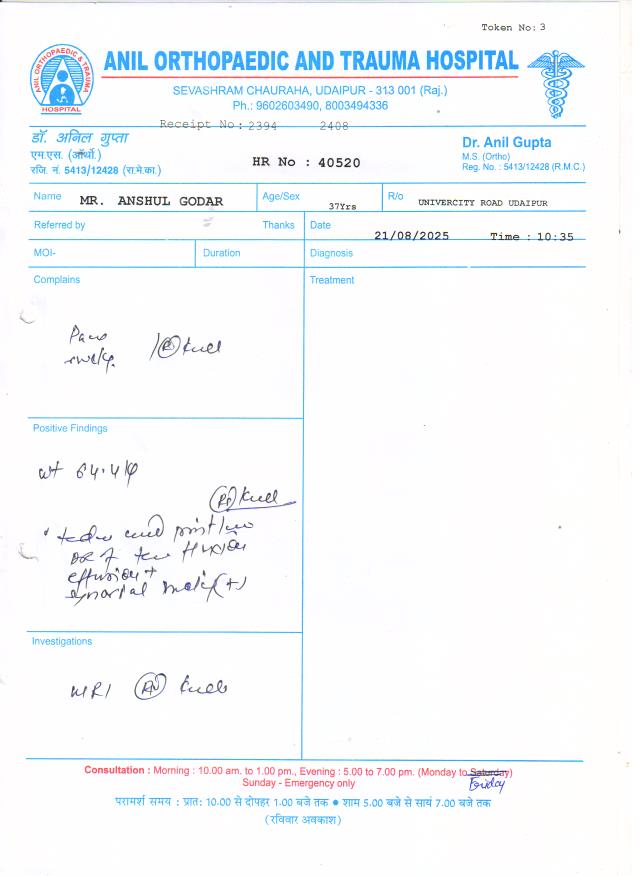 Token No: 3
ANIL ORTHOPAEDIC & TRAUMA
HOSPITAL
ANIL ORTHOPAEDIC AND TRAUMA HOSPITAL
SEVASHRAM CHAURAHA, UDAIPUR - 313 001 (Raj.)
Ph.: 9602603490, 8003494336
Receipt No: 2394 2408
डॉ. अनिल गुप्ता
एम.एस. (ऑर्थो.)
रजि. नं. 5413/12428 (रा.मे.का.)
HR No : 40520
Dr. Anil Gupta
M.S. (Ortho)
Reg. No. : 5413/12428 (R.M.C.)
Name MR. ANSHUL GODAR Age/Sex 37Yrs R/o UNIVERCITY ROAD UDAIPUR
Referred by Thanks Date 21/08/2025 Time : 10:35
MOI- Duration Diagnosis
Complains Treatment
Pain
Positive Findings
wt
effusion +
synovial (+)
Investigations
MRI
Consultation : Morning : 10.00 am. to 1.00 pm., Evening : 5.00 to 7.00 pm. (Monday to Saturday)
Friday
Sunday - Emergency only
परामर्श समय : प्रातः 10.00 से दोपहर 1.00 बजे तक ● शाम 5.00 बजे से सायं 7.00 बजे तक
(रविवार अवकाश)